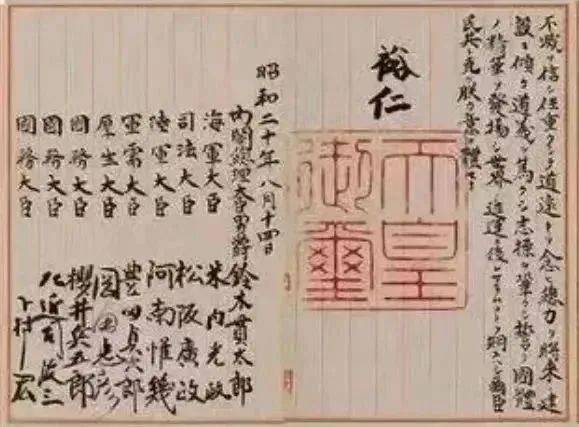 不滅ヲ信シ任重クシテ道遠キヲ念ヒ總力ヲ將來ノ建
設ニ傾ケ道義ヲ篤クシ志操ヲ鞏クシ誓テ國體
ノ精華ヲ發揚シ世界ノ進運ニ後レサラムコトヲ期スヘシ爾臣
民其レ克ク朕カ意ヲ體セヨ
裕仁
天皇
御璽
昭和二十年八月十四日
內閣總理大臣男爵鈴木貫太郎
海軍大臣 米內光政
司法大臣 松阪廣政
陸軍大臣 阿南惟幾
軍需大臣 豊田貞次郎
厚生大臣 岡田忠彦
國務大臣 櫻井兵五郎
國務大臣 左近司政三
國務大臣 下村宏